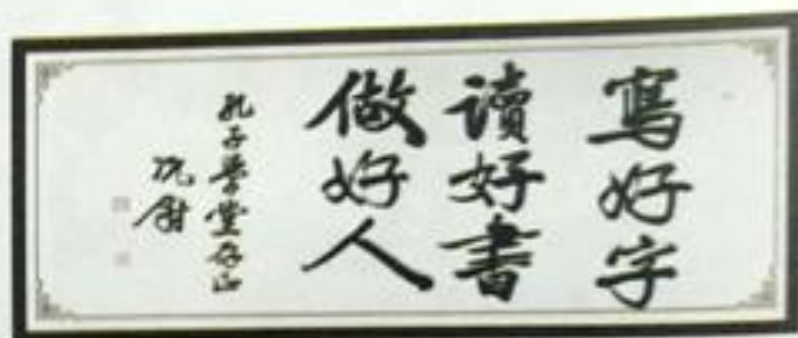 寫好字
讀好書
做好人
孔子學堂存正
沈尌